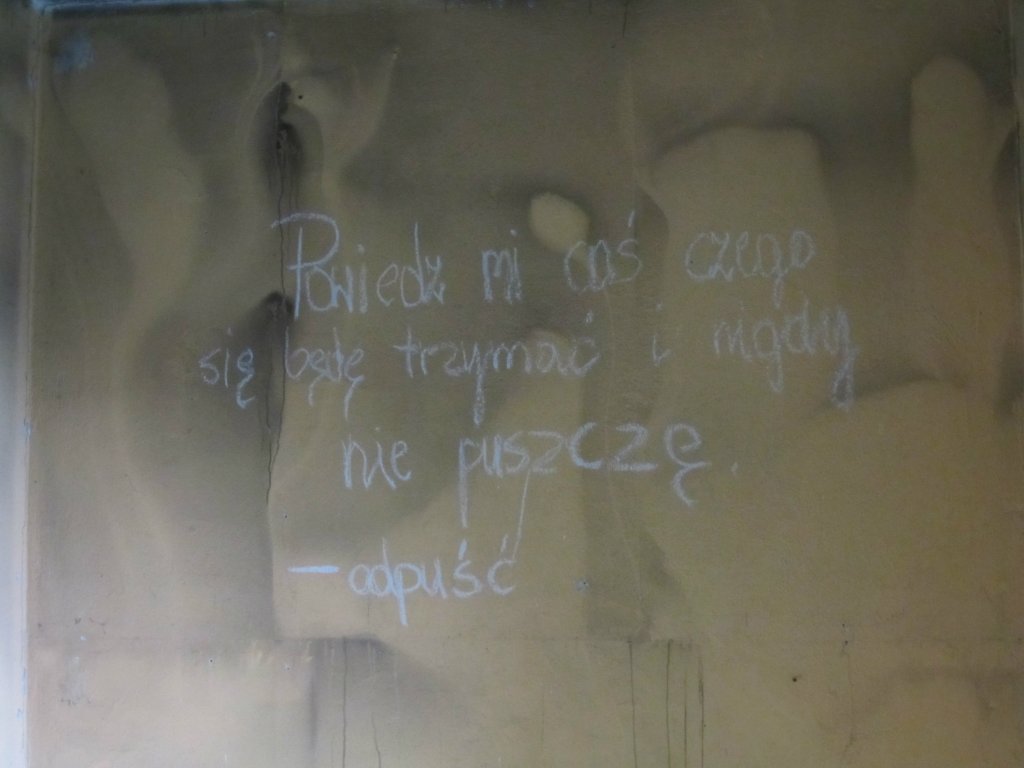 Powiedz mi coś czego
się będę trzymać i nigdy
nie puszczę.
- odpuść